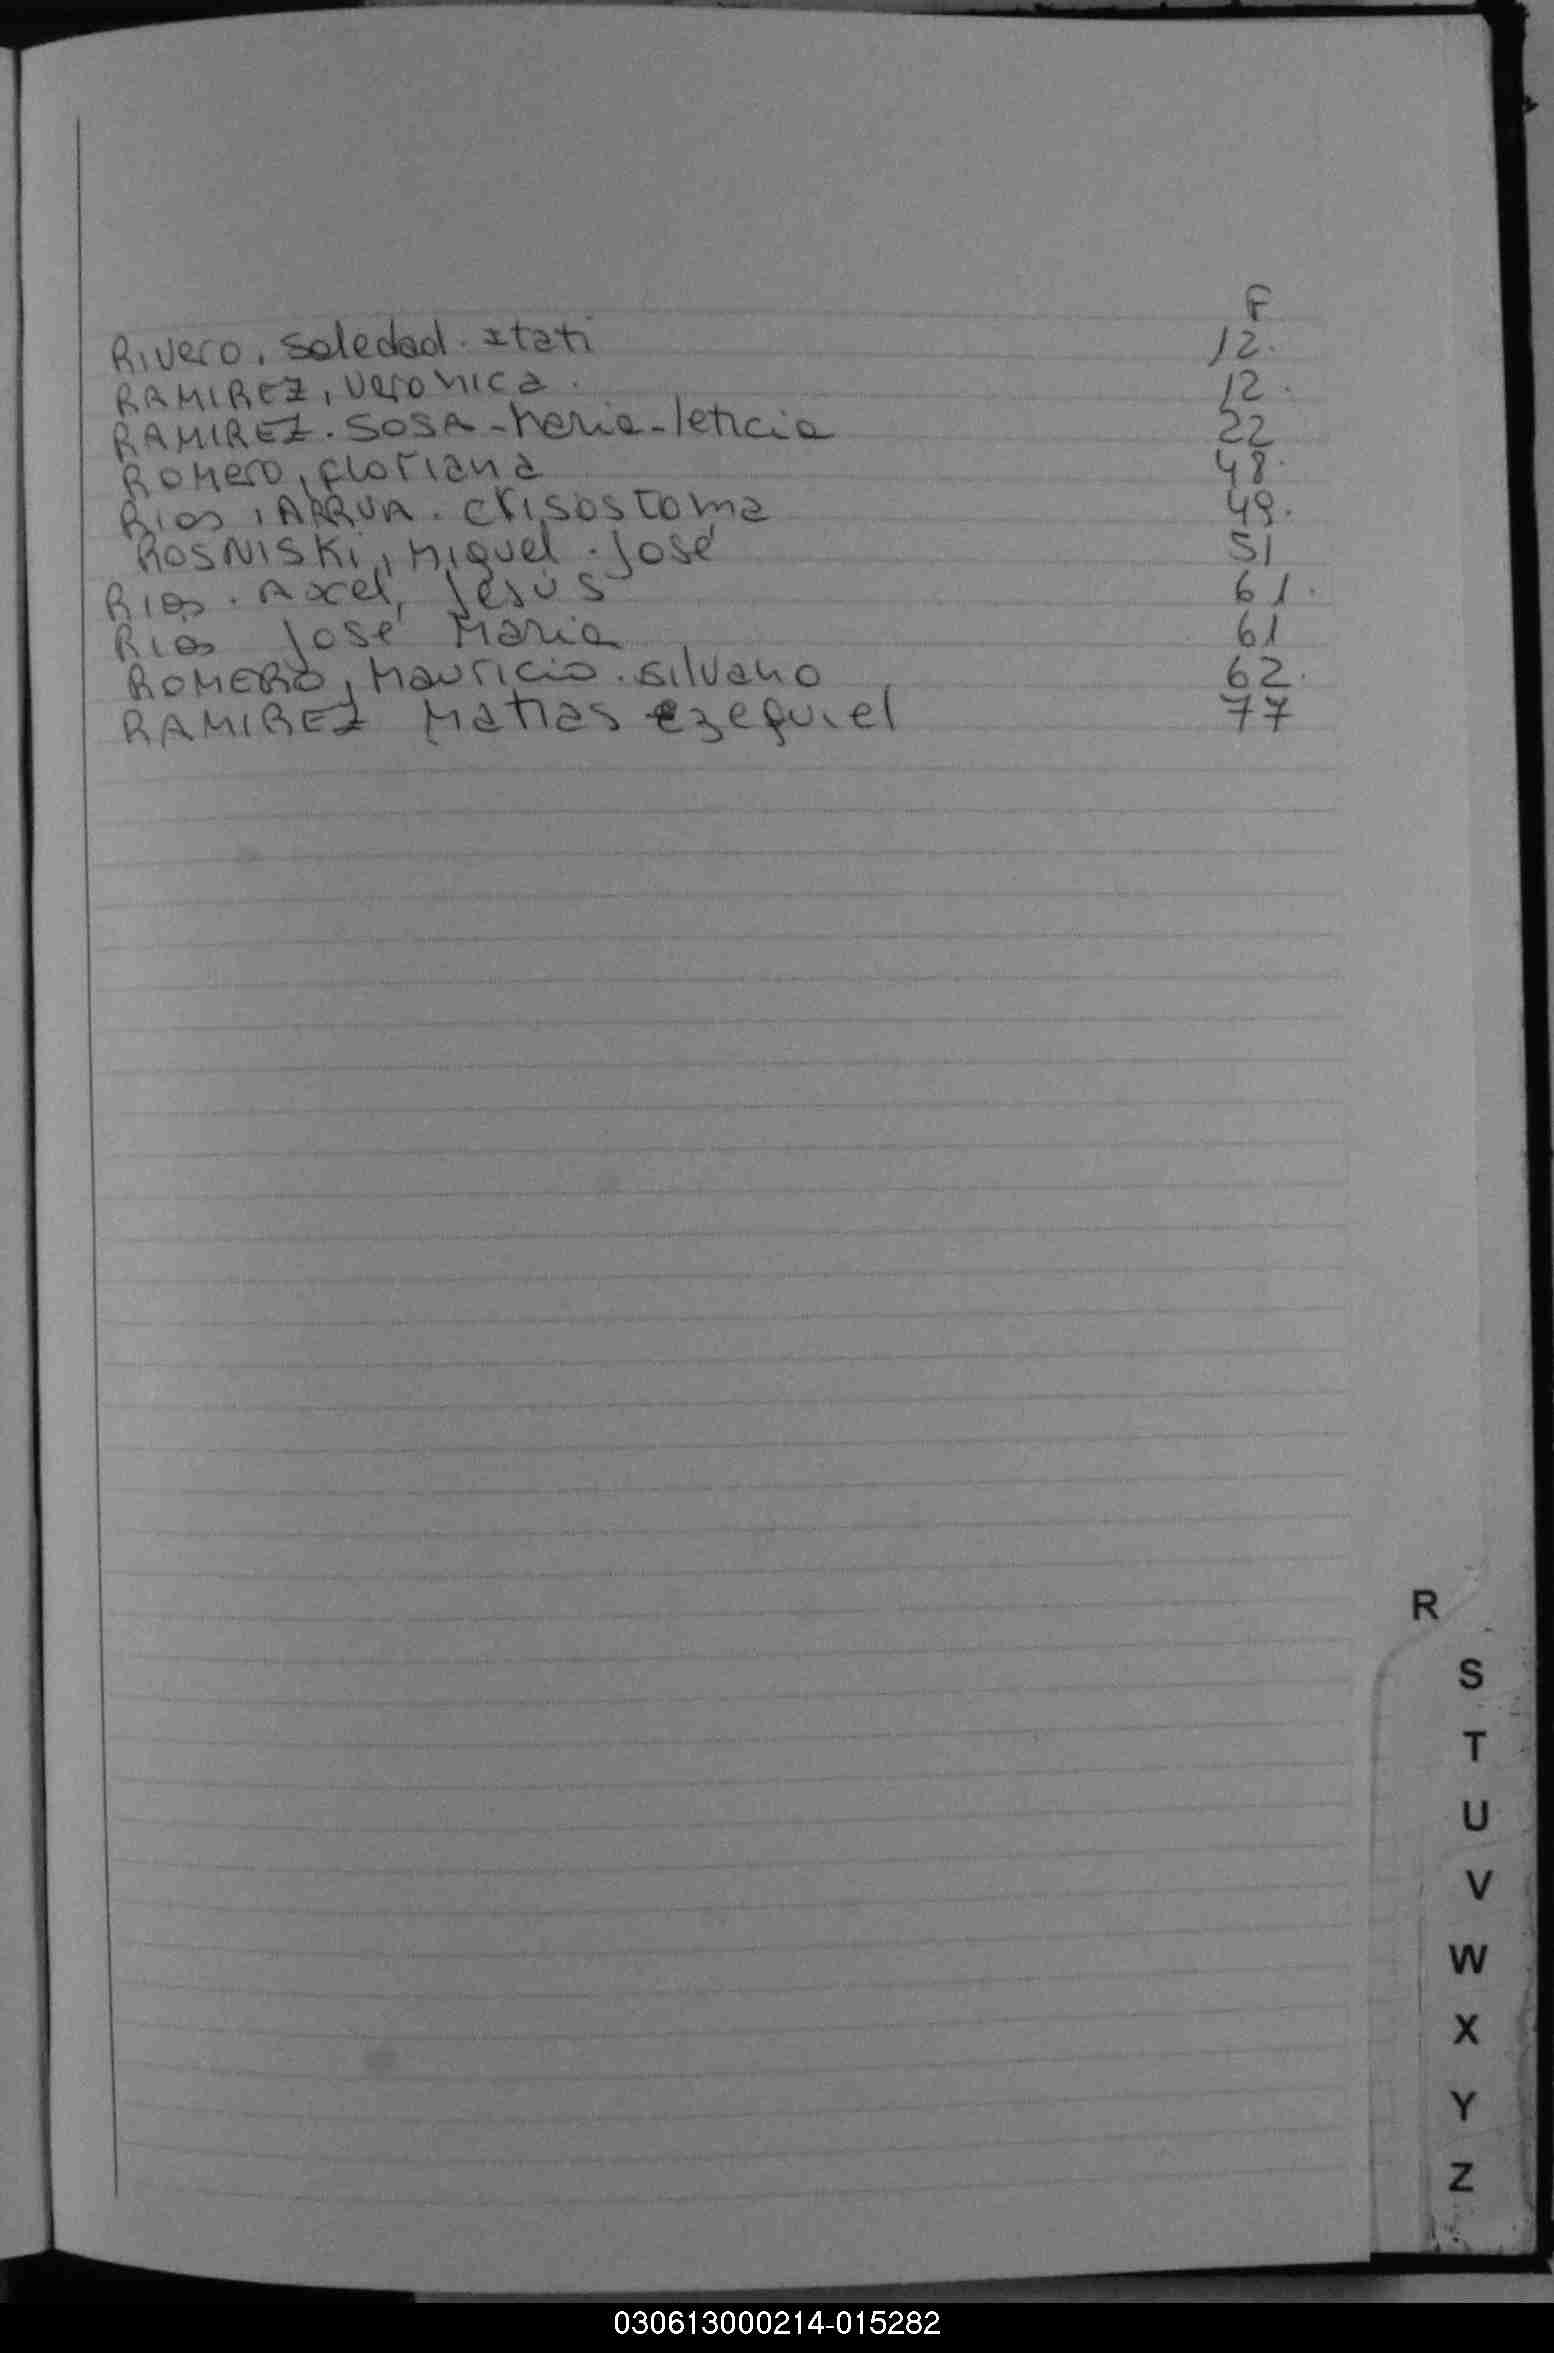 F
Rivero, Soledad. Itati 12.
RAMIREZ, Veronica. 12.
RAMIREZ. SOSA - Maria - leticia 22
Romero, floriana 48.
Rios, ARRUA. crisostoma 49.
ROSNISKi, Miguel. José 51
Rios. Axel, Jesús 61.
Rios José Maria 61
ROMERO, Mauricio. silvano 62.
RAMIREZ Matias ezequiel 77
R
S
T
U
V
W
X
Y
Z
030613000214-015282